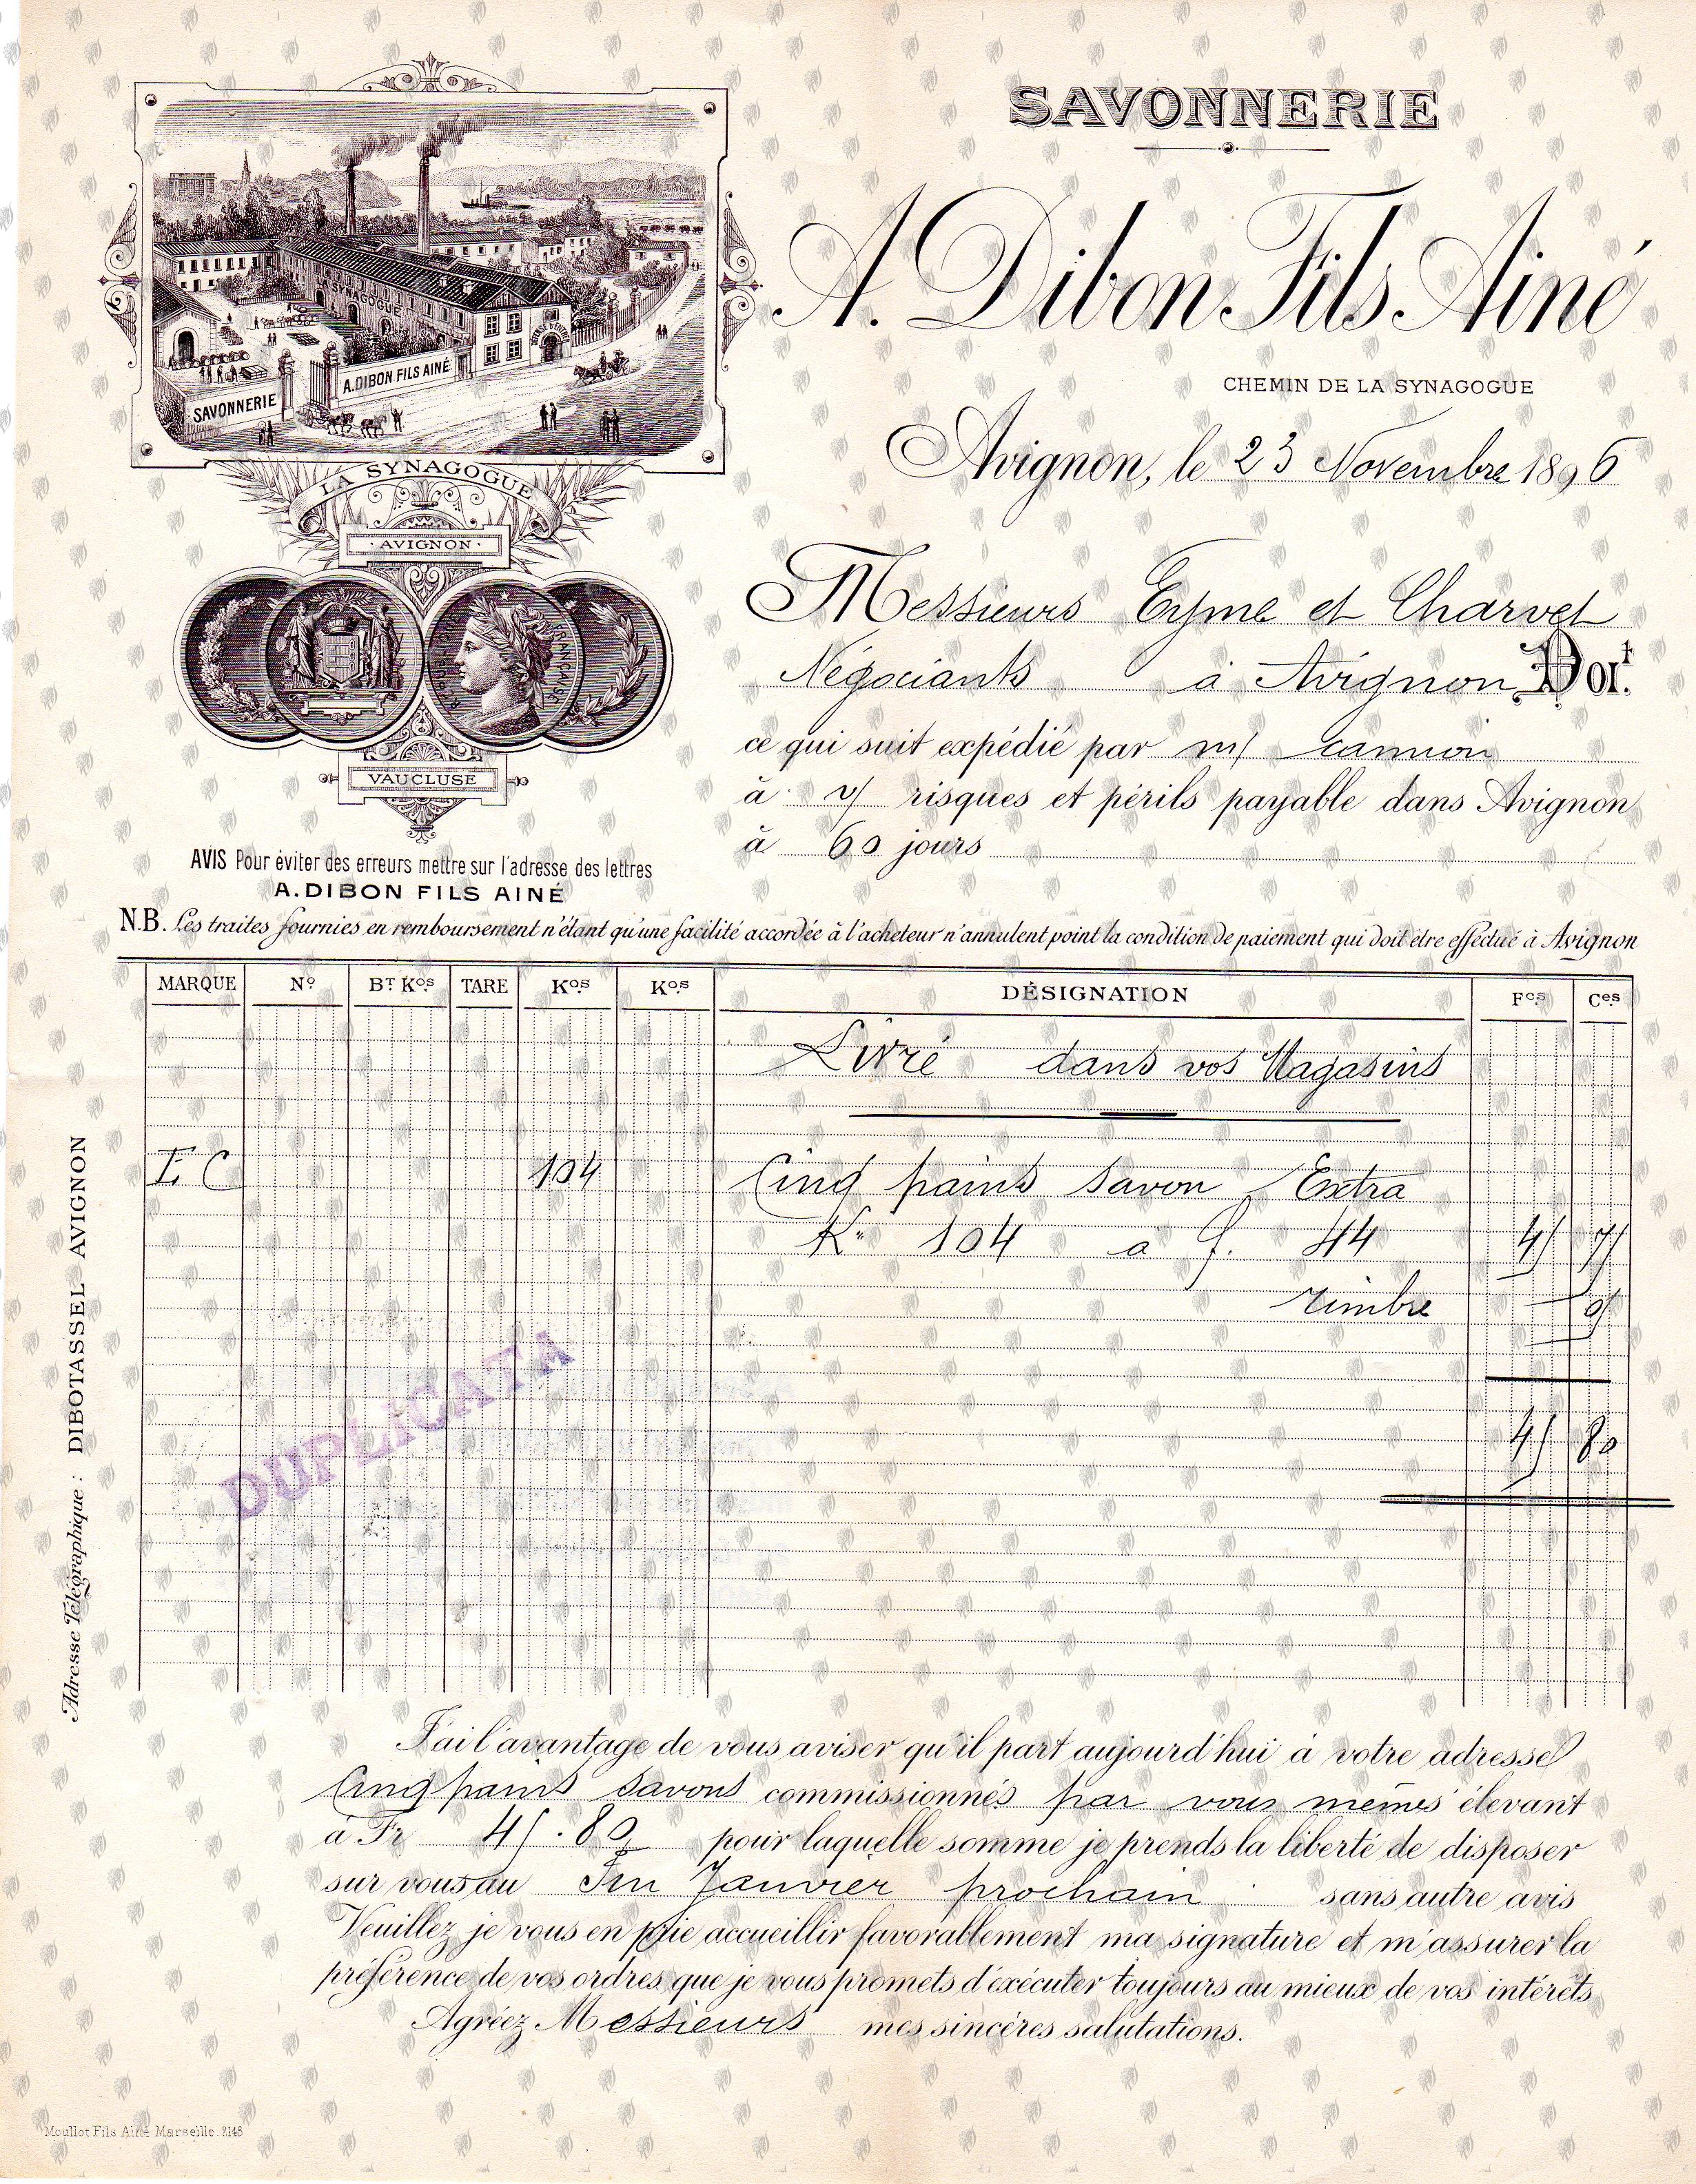 SAVONNERIE
A. Dibon Fils Ainé
CHEMIN DE LA SYNAGOGUE
LA SYNAGOGUE
SAVONNERIE
A.DIBON FILS AINÉ
LA SYNAGOGUE
· AVIGNON ·
REPUBLIQUE FRANCAISE
VAUCLUSE
Avignon, le 23 Novembre 1896
Messieurs Eyme et Charvet
Négociants à Avignon Doi.t
ce qui suit expédié par m/ camion
à v/ risques et périls payable dans Avignon
à 60 jours
AVIS Pour éviter des erreurs mettre sur l'adresse des lettres
A. DIBON FILS AINÉ
N.B. Les traites fournies en remboursement n'étant qu'une facilité accordée à l'acheteur n'annulent point la condition de paiement qui doit être effectué à Avignon
MARQUE No BT Kos TARE Kos Kos DÉSIGNATION Fcs Ces
Livré dans vos Magasins
E C 104 Cinq pains savon Extra
Ko 104 a f. 44 45 75
timbre 05
45 80
DUPLICATA
Adresse Télégraphique : DIBOTASSEL AVIGNON
J'ai l'avantage de vous aviser qu'il part aujourd'hui à votre adresse
Cinq pains savons commissionnés par vous mêmes élevant
à Fr 45.80 pour laquelle somme je prends la liberté de disposer
sur vous au Fin Janvier prochain sans autre avis
Veuillez je vous en prie accueillir favorablement ma signature et m'assurer la
préférence de vos ordres que je vous promets d'éxécuter toujours au mieux de vos intérêts
Agréez Messieurs mes sincères salutations.
Moullot Fils Ainé Marseille. 2148